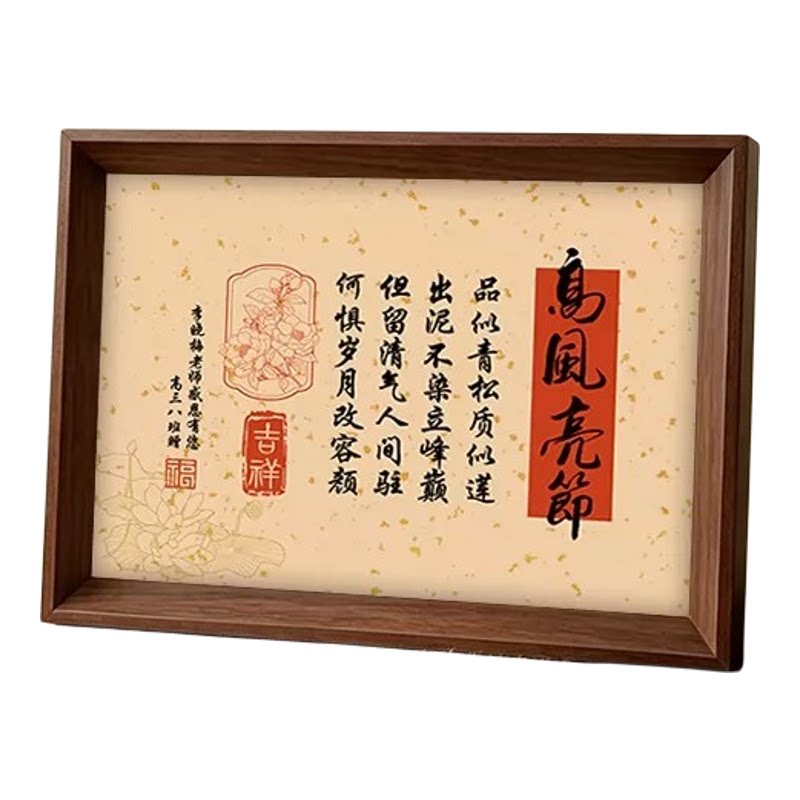 高風亮節
品似青松质似莲
出泥不染立峰巅
但留清气人间驻
何惧岁月改容颜
吉祥
李晓梅老师感恩有您
高三八班赠
福